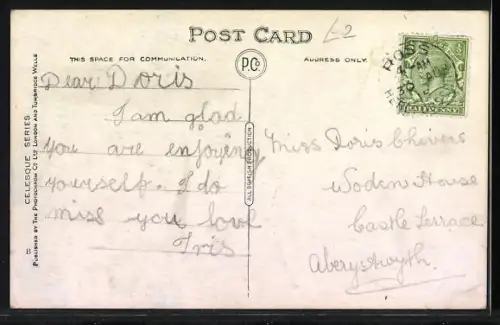 POST CARD
£-2
THIS SPACE FOR COMMUNICATION.
ADDRESS ONLY.
P.Co.
Dear Doris
I am glad
you are enjoying
yourself. I do
miss you love
Iris
Miss Doris Chivers
Woden House
Castle Terrace
Aberystwyth.
ROSS
AM
30
HALFPENNY
CELESQUE SERIES.
PUBLISHED BY THE PHOTOCHROM CO. LTD. LONDON AND TUNBRIDGE WELLS
ALL BRITISH PRODUCTION